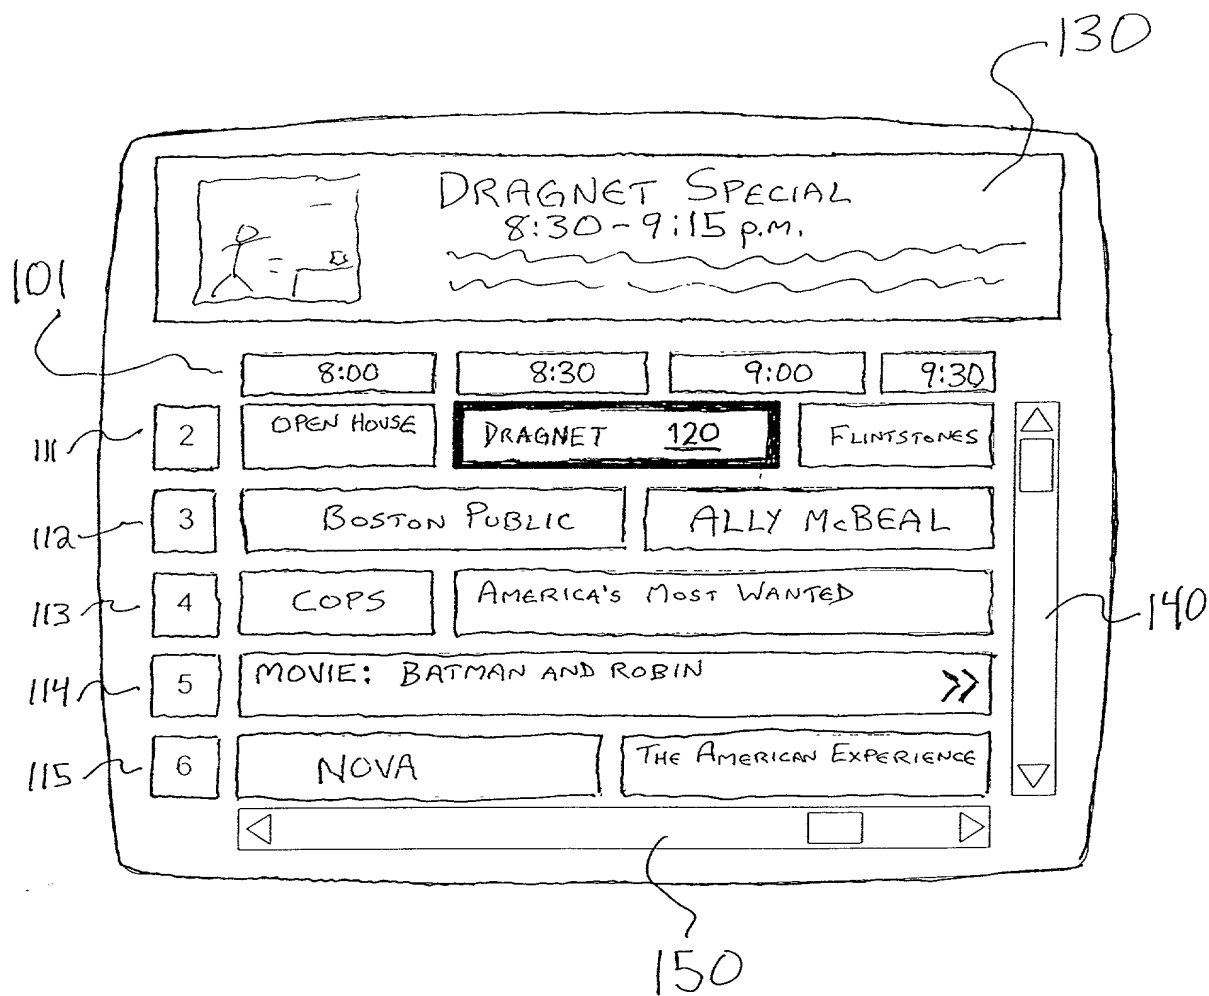 130
DRAGNET SPECIAL
8:30-9:15 p.m.
101
8:00 8:30 9:00 9:30
111 2 OPEN HOUSE DRAGNET 120 FLINTSTONES
112 3 BOSTON PUBLIC ALLY McBEAL
113 4 COPS AMERICA'S MOST WANTED
140
114 5 MOVIE: BATMAN AND ROBIN >>
115 6 NOVA THE AMERICAN EXPERIENCE
150